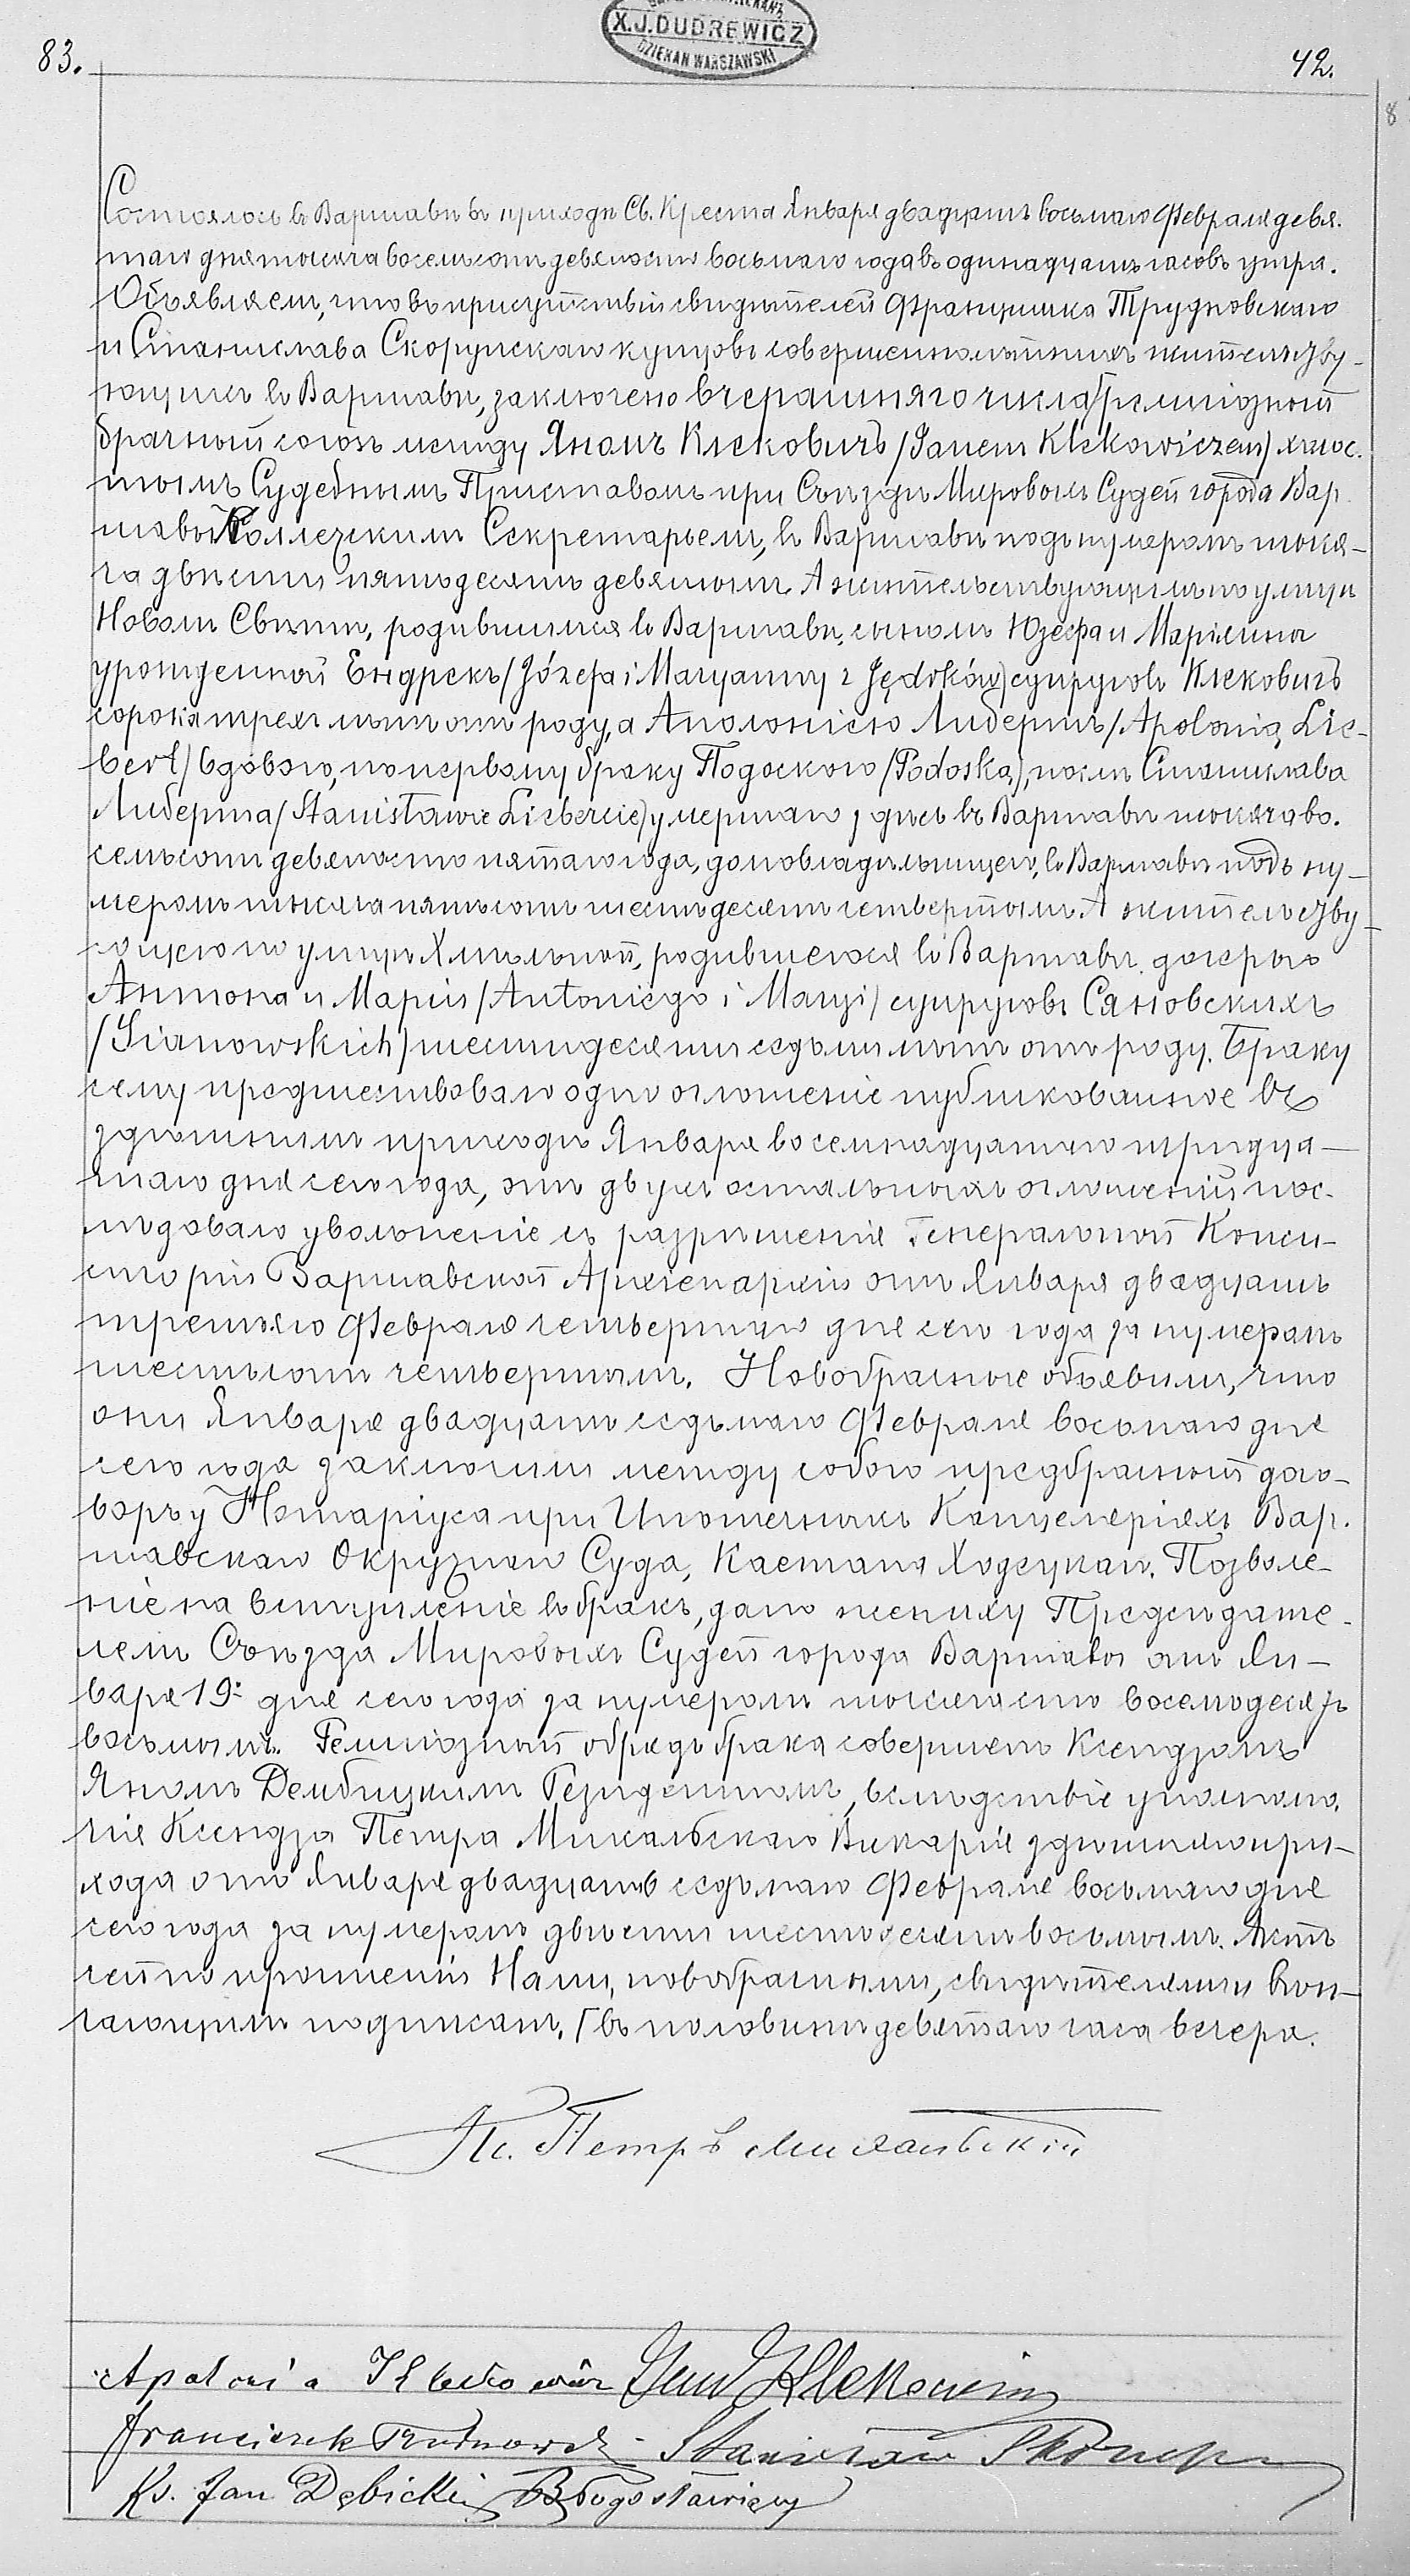 X.J.DUDREWICZ
DZIEKAN WARSZAWSKI
83.
42.
8
Состоялось въ Варшавѣ въ приходѣ Св. Креста Января двадцать восьмаго Февраля девя.
таго дня тысяча восемьсотъ девяносто восьмаго года въ одинадцать часовъ утра.
Объявляемъ, что въ присутствіи свидѣтелей Францишка Трудновскаго
и Станислава Скорупскаго купцовъ совершеннолѣтнихъ жительству-
ющихъ въ Варшавѣ, заключено вчерашняго числа религіозный
брачный союзъ между Яномъ Клековичъ /Janem Klekowiczem/ холос.
тымъ Судебнымъ Приставомъ при Съѣздѣ Мировыхъ Судей города Вар.
шавы Коллежскимъ Секретаремъ, въ Варшавѣ подъ нумеромъ тыся-
ча двѣсти пятьдесятъ девятымъ А жительствующимъ по улицѣ
Новомъ Свѣтѣ, родившимся въ Варшавѣ, сыномъ Юзефа и Маріанны
урожденной Ендрекъ /Józefa i Maryanny z Jędrków/ супруговъ Клековичъ
сорока трехъ лѣтъ отъ роду, а Аполоніею Либертъ /Apolonią Lie-
bert/ вдовою, по первому браку Подоскою /Podoską/, послѣ Станислава
Либерта /Stanisławie Liebercie/ умершаго здѣсь въ Варшавѣ тысяча во.
семьсотъ девяносто пятаго года, домовладѣлицею, въ Варшавѣ подъ ну-
меромъ тысяча пятьсотъ шестьдесятъ четвертымъ А жительству-
ющею по улицѣ Хмѣльной, родившеюся въ Варшавѣ дочерью
Антона и Маріи /Antoniego i Maryi/ супруговъ Сяновскихъ
/Sianowskich/ шестидесяти седьми лѣтъ отъ роду. Браку
сему предшествовало одно оглашеніе публикованное въ
здѣшнемъ приходѣ Января восемнадцатаго тридца-
таго дня сего года, отъ двухъ остальныхъ оглашеній пос-
лѣдовало увольненіе съ разрѣшенія Генеральной Конси-
сторіи Варшавской Архіепархіи отъ Января двадцать
третьяго Февраля четвертаго дня сего года за нумеромъ
шестьсотъ четвертымъ. Новобрачные объявили, что
они Января двадцать седьмаго Февраля восьмаго дня
сего года заключили между собою предбрачный дого-
воръ у Нотаріуса при Ипотечныхъ Канцеляріяхъ Вар.
шавскаго Окружнаго Суда, Каетана Ходецкаго. Позволе-
ніе на вступленіе въ бракъ, дано жениху Предсѣдате-
лемъ Съѣзда Мировыхъ Судей города Варшавы отъ Ян-
варя 19: дня сего года за нумеромъ тысяча сто восемьдесятъ
восьмымъ. Религіозный обрядъ брака совершенъ Ксендзомъ
Яномъ Дембицкимъ Резидентомъ, вслѣдствіе уполномо.
чія Ксендза Петра Михальскаго Викарія здѣшняго при-
хода отъ Января двадцать седьмаго Февраля восьмаго дня
сего года за нумеромъ двѣсти шестьдесятъ восьмымъ. Актъ
сей по прочтеніи Нами, новобрачными, свидѣтелями и вѣн-
чающимъ подписанъ. / въ половинѣ девятаго часа вечера.
Кс. Петръ Михальскій
Apolonia Klekowicz Jan Klekowicz
Franciszek Trudnowski Stanisław Skorupski
Ks. Jan Dębicki Błogosławiący